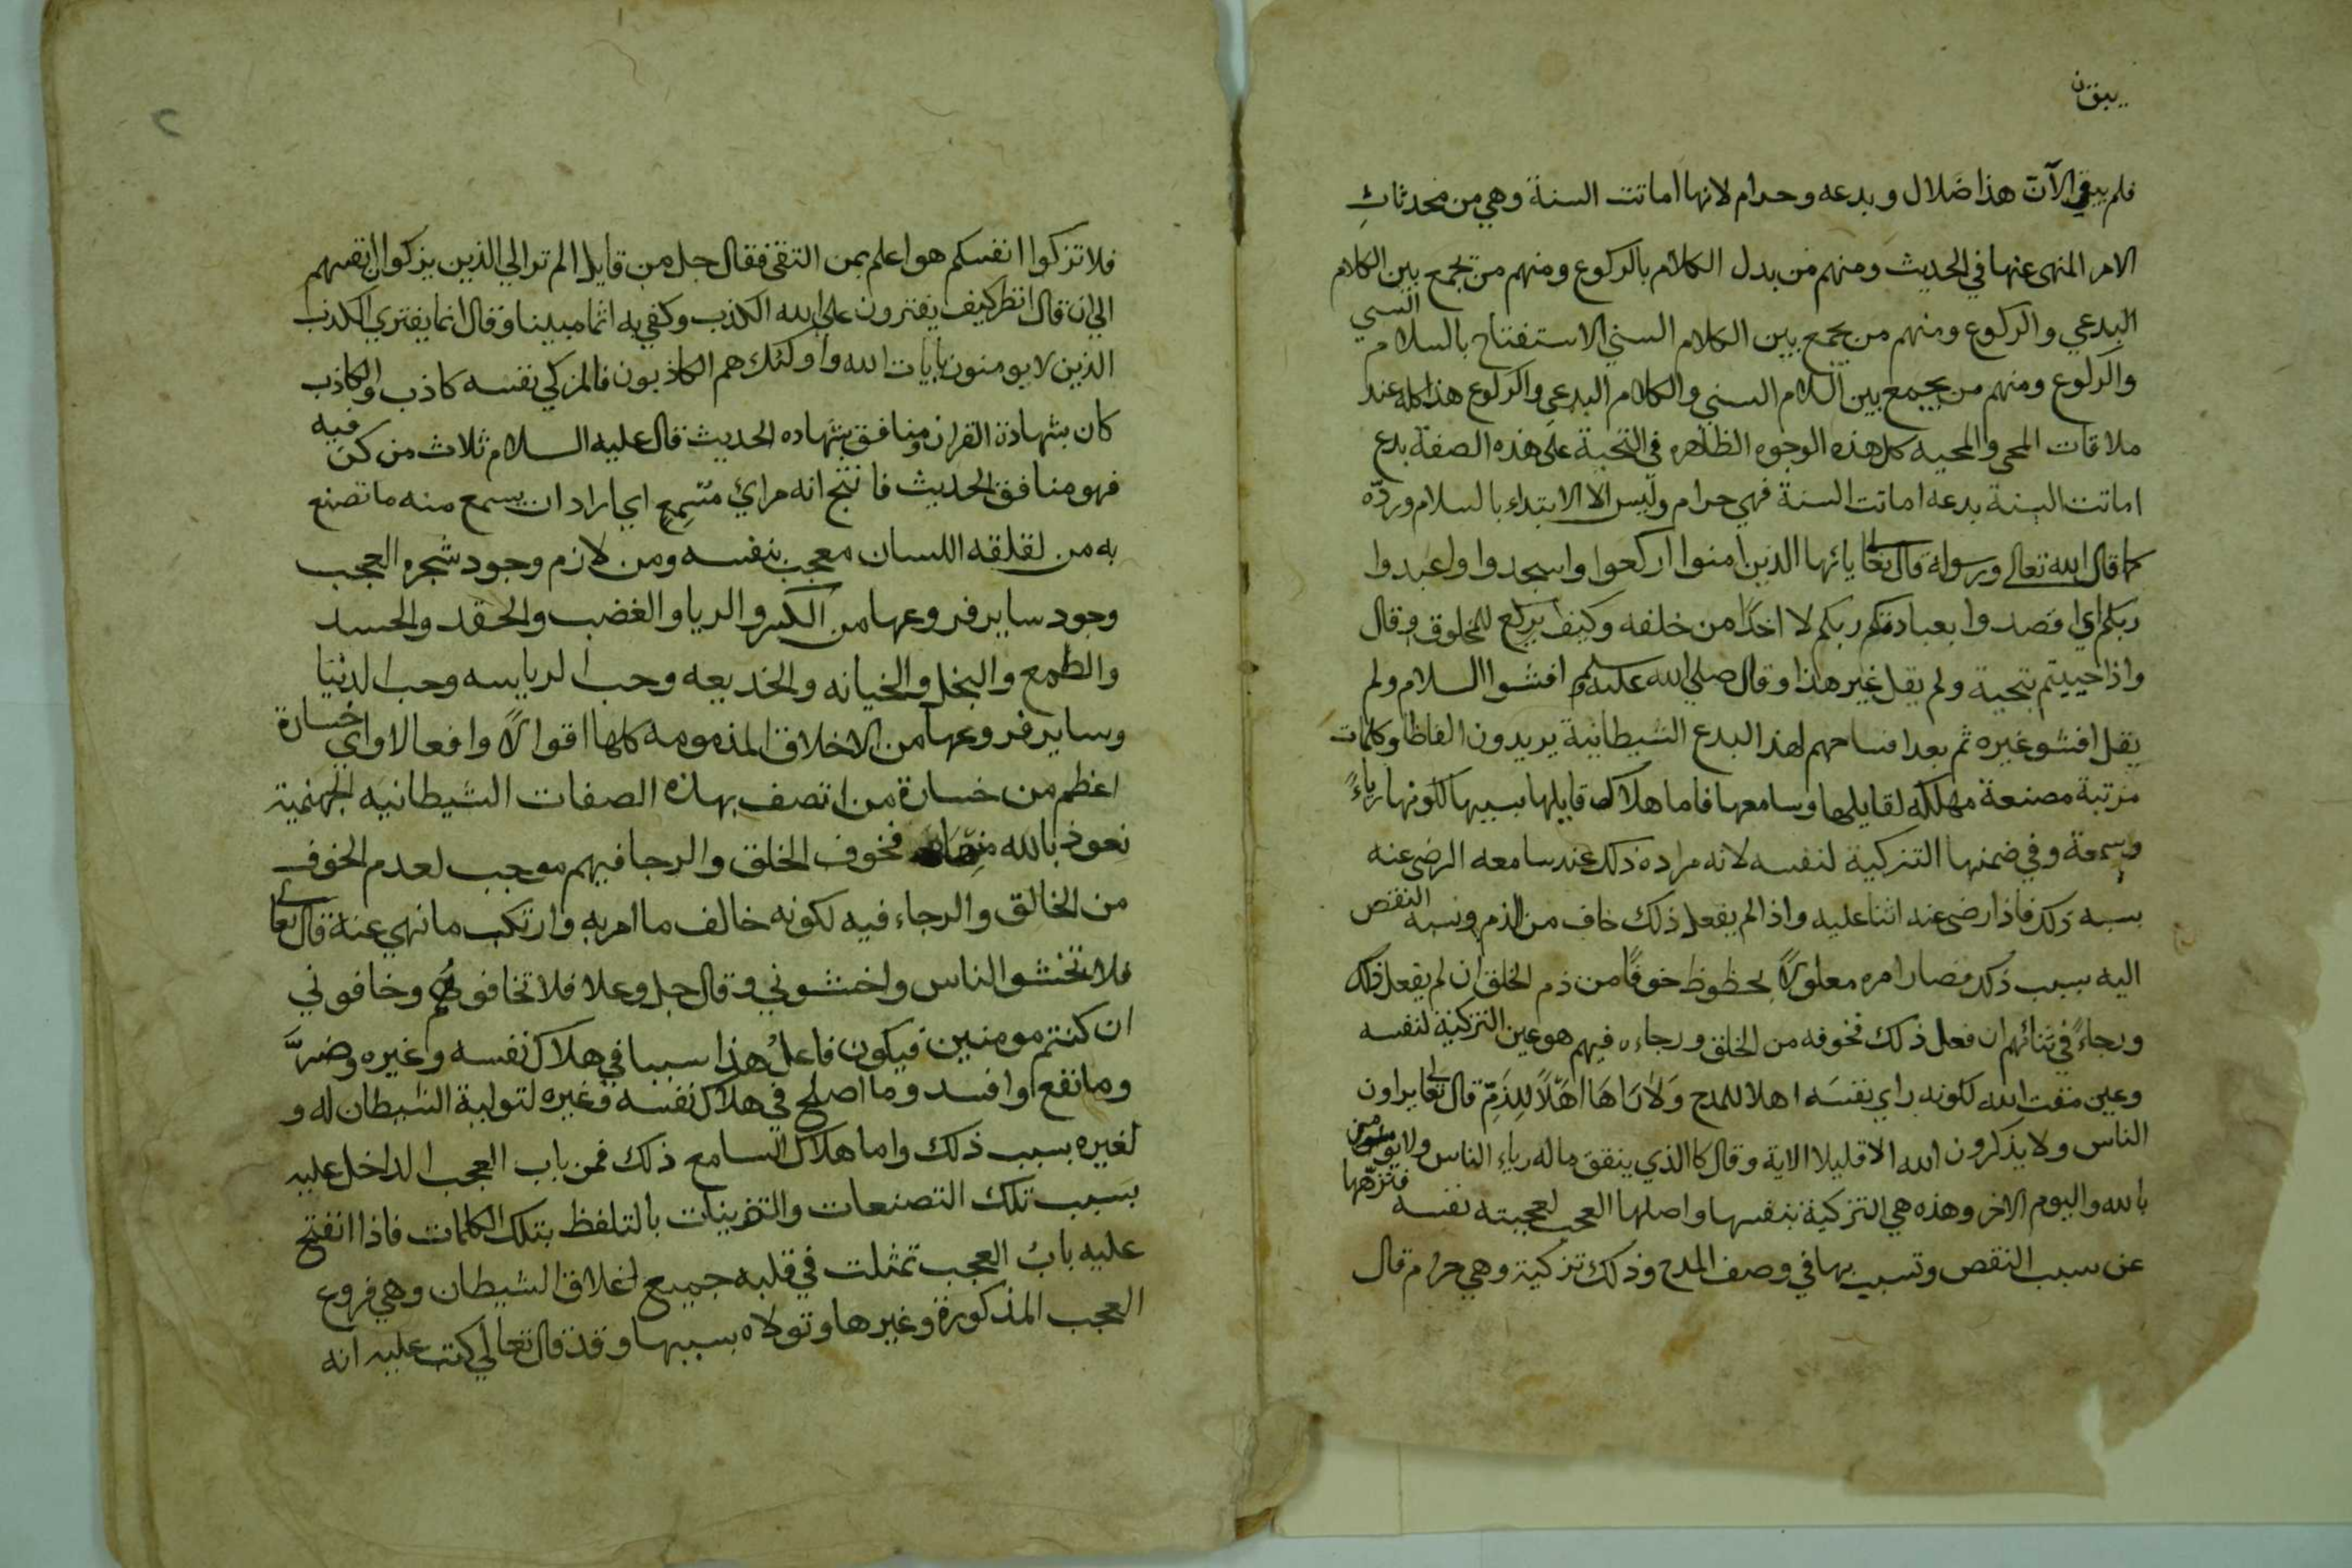 يبق ن
فلم يبقي الآن هذا ضلال وبدعه وحرام لانها اماتت السنة وهي من محدثاث
الامر المنهى عنها في الحديث ومنهم من بدل الكلام بالركوع ومنهم من يجمع بين الكلام
البدعي والركوع ومنهم من يجمع بين الكلام السني الاستفتاح بالسلام السني
والركوع ومنهم من يجمع بين السلام السني والكلام البدعي والركوع هذا كله عند
ملاقات المحي والمحيه كل هذه الوجوه الظاهره في التحية على هذه الصفة بدع
اماتت السنة بدعه اماتت السنة فهي حرام وليس الا الابتداء بالسلام وردّه
كما قال الله تعالى ورسوله قال تعالى يائها الذين امنوا اركعوا واسجدوا واعبدوا
ربكم اي اقصدوا بعبادتكم ربكم لا احدًا من خلقه وكيف يركع للمخلوق وقال
واذا حييتم بتحية ولم يقل غير هذا وقال صلي الله عليه وسلم افشوا السلام ولم
يقل افشو غيره ثم بعد لهذ البدع الشيطانية يريدون الفاظا وكلمات
مرتبة مصنعة مهلكه لقايلها وسامعها فاما هلاك قايلها بسببها لكونها رياءً
وسمعة وفي ضمنها التزكية لنفسه لانه مراده ذلك عند سامعه الرضى عنه
بسبه ذلك فاذا رضى عنه اثنا عليه واذا لم يفعل ذلك خاف من الذم ونسبه النقص
اليه بسبب ذلك فصار امره معلولاً بحظوظ خوفًا من ذم الخلق ان لم يفعل ذلك
ورجاءً في ثنائهم ان فعل ذلك فخوفه من الخلق ورجاءه فيهم هو عين التزكية لنفسه
وعين مقت الله لكونه راي نفسَه اهلا للمدح وَلاَ رَاهَا اهَلاً للِذَمِّ قال تعالى يراون
الناس ولا يذكرون الله الا قليلا الاية وقال كا الذي ينفق ماله رياء الناس ولا يومن
بالله واليوم الاخر وهذه هي التزكية بنفسها واصلها العجب لعجبته نفسه فنزهها
عن سبب النقص وتسبب بها في وصف المدح وذلك تزكية وهي حرام قال
فلا تزكوا انفسكم هو اعلم بمن التقي فقال جل من قايل الم تر الي الذين يزكوا انفسهم
الي ان قال انظر كيف يفترون على الله الكذب وكفي به اثما مبينا وقال انما يفتري الكذب
الذين لا يومنون بايات الله واولئك هم الكاذبون فالمزكي نفسه كاذب والكاذب
كان بشهادة القران ومنافق بشهاده الحديث قال عليه السلام ثلاث من كن فيه
فهو منافق الحديث فانتج انه مراي مُتسِمعٍ اي اراد ان يسمع منه ما تصنع
به من لقلقه اللسان معجب بنفسه ومن لازم وجود شجره العجب
وجود ساير فروعها من الكبر والريا والغضب والحقد والحسد
والطمع والبخل والخيانه والخديعه وحب الرياسه وحب الدنيا
وساير فروعها من الاخلاق المذمومه كلها اقوالاً وافعالا واي خسارة
اعظم من خسارة من اتصف بهاذه الصفات الشيطانيه الجهنمية
نعوذ بالله منها فخوف الخلق والرجا فيهم موجب لعدم الخوف
من الخالق والرجاء فيه لكونه خالف ما امر به وارتكب ما نهي عنه قال تعالى
فلا تخشو الناس واخشوني وقال جل وعلا فلا تخافوهُم وخافوني
ان كنتم مومنين فيكون فاعلُ هذا سببا في هلاك نفسه وغيره وضرَّ
وما نفع او افسد وما اصلح في هلاك نفسه وغيره لتولية الشيطان له و
لغيره بسبب ذلك واما هلاك السامع ذلك فمن باب العجب الداخل عليه
بسبب تلك التصنعات والتزيينات بالتلفظ بتلك الكلمات فاذا انفتح
عليه بابُ العجب تمثلت في قلبه جميع اخلاق الشيطان وهي فروع
العجب المذكورة وغيرها وتولاه بسببها وقد قال تعالي كتب عليه انه